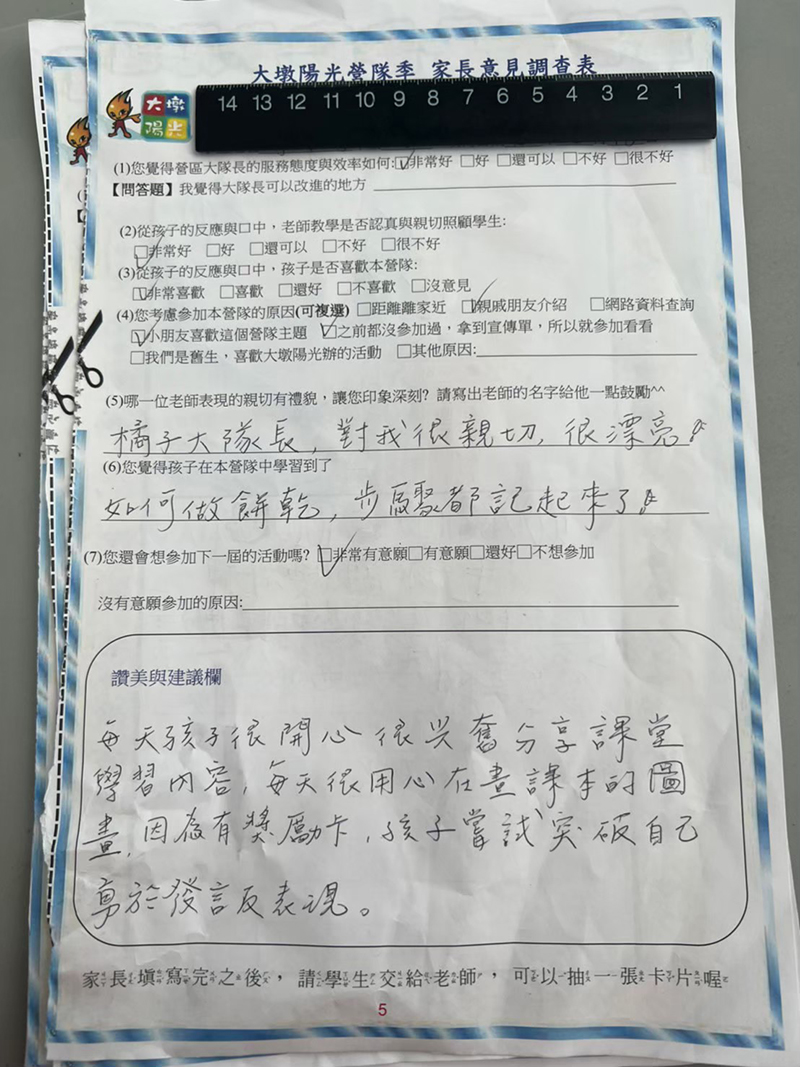 大墩陽光營隊季 家長意見調查表
大墩
陽光
14 13 12 11 10 9 8 7 6 5 4 3 2 1
(1)您覺得營區大隊長的服務態度與效率如何:☑非常好 □好 □還可以 □不好 □很不好
【問答題】我覺得大隊長可以改進的地方
(2)從孩子的反應與口中，老師教學是否認真與親切照顧學生:
☑非常好 □好 □還可以 □不好 □很不好
(3)從孩子的反應與口中，孩子是否喜歡本營隊:
☑非常喜歡 □喜歡 □還好 □不喜歡 □沒意見
(4)您考慮參加本營隊的原因(可複選) □距離離家近 ☑親戚朋友介紹 □網路資料查詢
☑小朋友喜歡這個營隊主題 ☑之前都沒參加過，拿到宣傳單，所以就參加看看
□我們是舊生，喜歡大墩陽光辦的活動 □其他原因:
(5)哪一位老師表現的親切有禮貌，讓您印象深刻? 請寫出老師的名字給他一點鼓勵^^
橘子大隊長，對我很親切，很漂亮
(6)您覺得孩子在本營隊中學習到了
如何做餅乾，步驟都記起來了
(7)您還會想參加下一屆的活動嗎? ☑非常有意願□有意願□還好□不想參加
沒有意願參加的原因:
讚美與建議欄
每天孩子很開心很兴奮分享課堂
學習內容，每天很用心在畫課本的圖
畫，因為有獎勵卡，孩子嘗試突破自己
勇於發言及表現。
家長填寫完之後，請學生交給老師，可以抽一張卡片喔
5